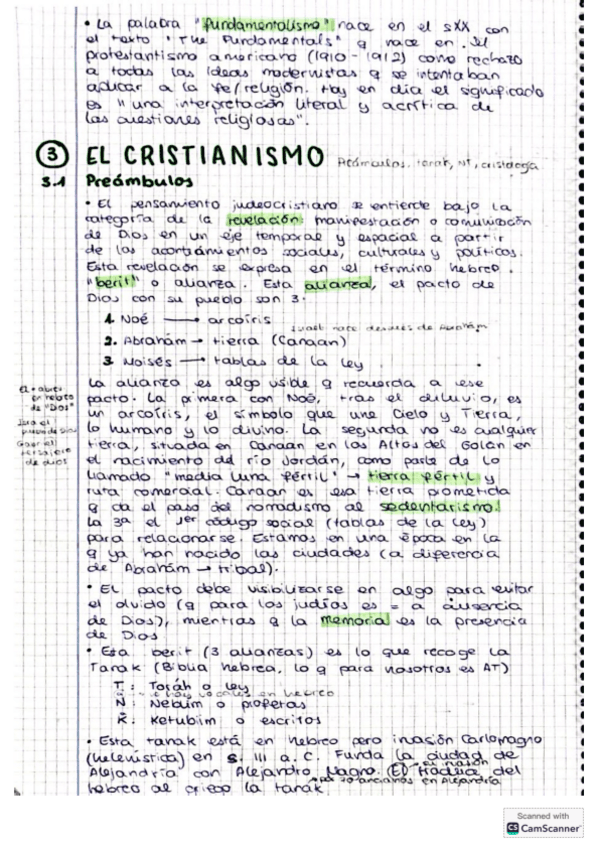 • La palabra "fundamentalismo" nace en el sXX con
el texto "The Fundamentals" q nace en el
protestantismo americano (1910 - 1912) como rechazo
a todas las ideas modernistas q se intentaban
aplicar a la fe/religión. Hoy en día el significado
es "una interpretación literal y acrítica de
las cuestiones religiosas".
③ EL CRISTIANISMO Preámbulos, tanak, NT, cristología
3.1 Preámbulos
• El pensamiento judeocristiano se entiende bajo la
categoría de la revelación: manifestación o comunicación
de Dios en un eje temporal y espacial a partir
de los acontecimientos sociales, culturales y políticos.
Esta revelación se expresa en el término hebreo
"berit" o alianza. Esta alianza, el pacto de
Dios con su pueblo son 3:
1. Noé → arcoíris
nace después de Abraham
2. Abraham → tierra (Canaan)
3. Moisés → tablas de la ley
La alianza es algo visible q recuerda a ese
pacto. La primera con Noé, tras el diluvio, es
un arcoíris, el símbolo que une Cielo y Tierra,
lo humano y lo divino. La segunda no es cualquier
tierra, situada en Canaan en los Altos del Golán en
el nacimiento del río Jordán, como parte de lo
llamado "media luna fértil" → tierra fértil y
ruta comercial. Canaan es esa tierra prometida
q da el paso del nomadismo al sedentarismo.
La 3ª el 1er código social (tablas de la ley)
para relacionarse. Estamos en una época en la
q ya han nacido las ciudades (a diferencia
de Abraham → tribal).
de "Dios"
de dios
• El pacto debe visibilizarse en algo para evitar
el olvido (q para los judíos es = a ausencia
de Dios), mientras q la memoria es la presencia
de Dios
• Esta berit (3 alianzas) es lo que recoge la
Tanak (Biblia hebrea, lo q para nosotros es AT)
T: Toráh o ley
no hay vocales en hebreo
N: Nebiim o profetas
K: Ketubiim o escritos
• Esta tanak está en hebreo pero invasión Carlomagno
(helenística) en s. III a. C. Funda la ciudad de
Alejandría con Alejandro Magno. del
por 70 ancianos en Alejandría
hebreo al griego la tanak
Scanned with
CS CamScanner